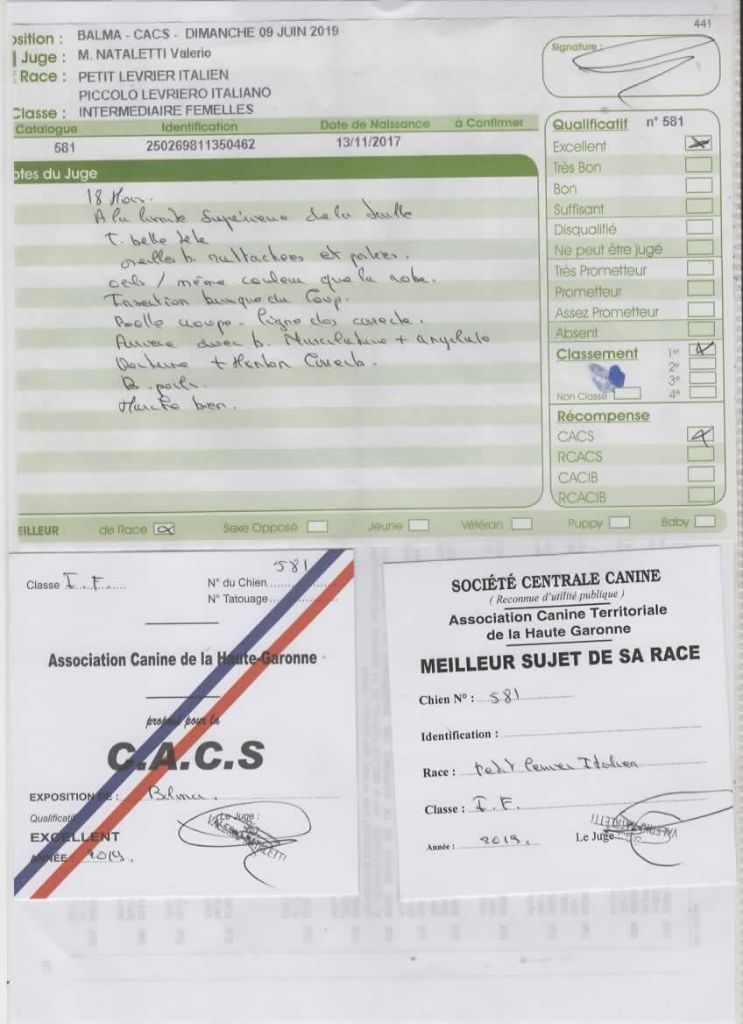 441
osition : BALMA - CACS - DIMANCHE 09 JUIN 2019
Juge : M. NATALETTI Valerio
Race : PETIT LEVRIER ITALIEN
PICCOLO LEVRIERO ITALIANO
Classe : INTERMEDIAIRE FEMELLES
Signature :
Catalogue Identification Date de Naissance à Confirmer
581 250269811350462 13/11/2017
otes du Juge
18 Mois.
A la limite Supérieure de la taille
T. belle tête
oreilles b. rattachées et portées.
même couleur que la robe.
Insertion du Coup.
Belle croupe - ligne dos correcte.
b. Musculature + angulatº
+ Menton Correct.
B. poils.
Marche bien.
Qualificatif n° 581
Excellent
Très Bon
Bon
Suffisant
Disqualifié
Ne peut être jugé
Très Prometteur
Prometteur
Assez Prometteur
Absent
Classement 1er
2e
3e
Non Classé 4e
Récompense
CACS
RCACS
CACIB
RCACIB
EILLEUR : de Race Sexe Opposé Jeune Vétéran Puppy Baby
Classe I.F.
N° du Chien 581
N° Tatouage
Association Canine de la Haute-Garonne
proposé pour la
C.A.C.S
EXPOSITION DE : Balma.
Qualificatif
Le Juge :
VALERIO NATALETTI
EXCELLENT
ANNÉE : 2019.
SOCIÉTÉ CENTRALE CANINE
( Reconnue d'utilité publique )
Association Canine Territoriale
de la Haute Garonne
MEILLEUR SUJET DE SA RACE
Chien N° : 581
Identification :
Race : Petit Levrier Italien
Classe : I.F.
Année : 2019. Le Juge
VALERIO NATALETTI